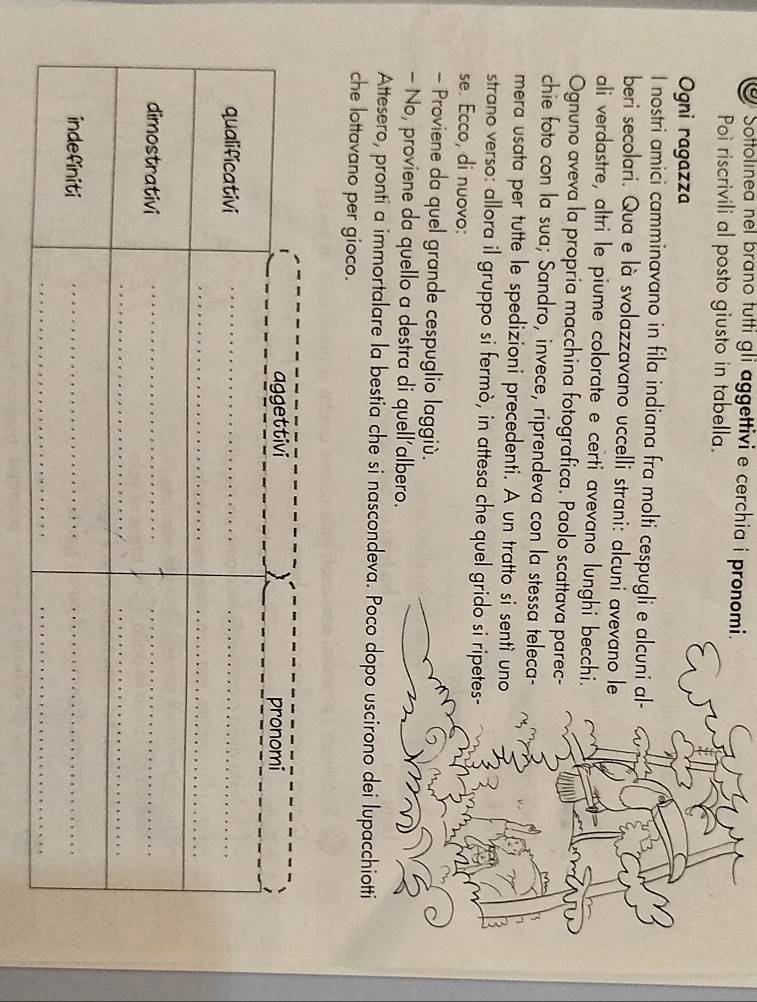 Sottolinea nel brano tutti gli aggettivi e cerchia i pronomi.
Poi riscrivili al posto giusto in tabella.
Ogni ragazza
I nostri amici camminavano in fila indiana fra molti cespugli e alcuni al-
beri secolari. Qua e là svolazzavano uccelli strani: alcuni avevano le
ali verdastre, altri le piume colorate e certi avevano lunghi becchi.
Ognuno aveva la propria macchina fotografica. Paolo scattava parec-
chie foto con la sua; Sandro, invece, riprendeva con la stessa teleca-
mera usata per tutte le spedizioni precedenti. A un tratto si sentì uno
strano verso: allora il gruppo si fermò, in attesa che quel grido si ripetes-
se. Ecco, di nuovo:
– Proviene da quel grande cespuglio laggiù.
– No, proviene da quello a destra di quell'albero.
Attesero, pronti a immortalare la bestia che si nascondeva. Poco dopo uscirono dei lupacchiotti
che lottavano per gioco.
aggettivi pronomi
qualificativi
dimostrativi
indefiniti